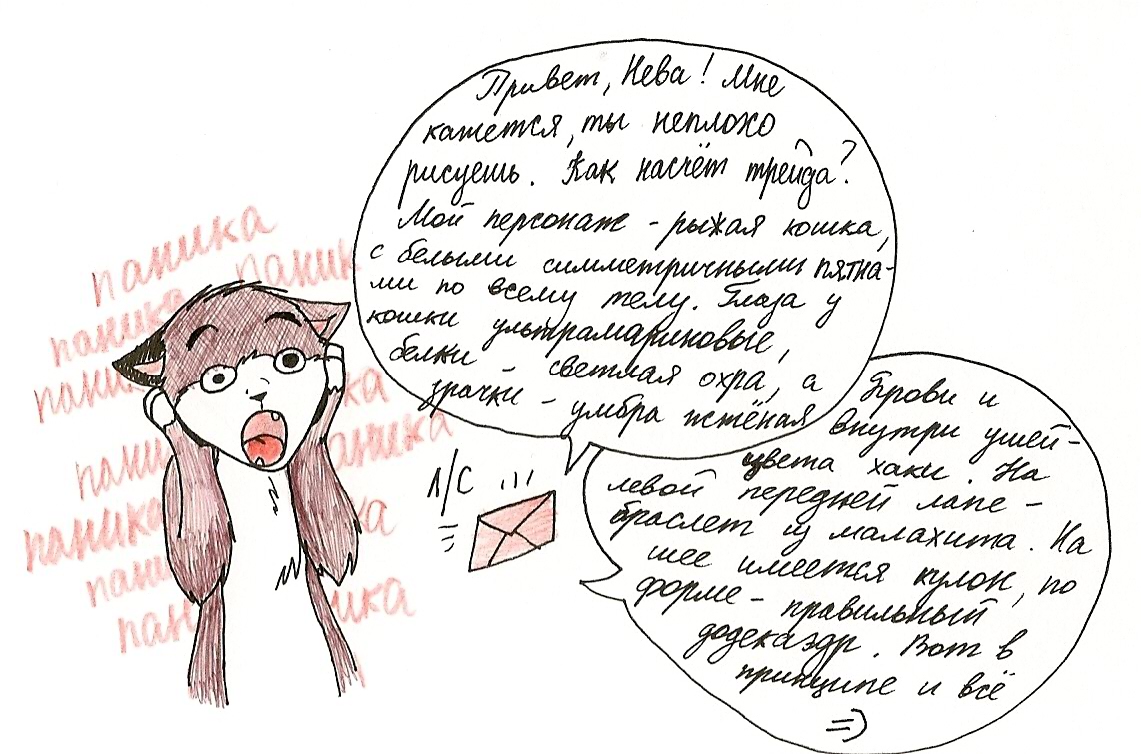 Привет, Нева! Мне
кажется, ты неплохо
рисуешь. Как насчёт трейда?
Мой персонаж - рыжая кошка,
с белыми симметричными пятна-
ми по всему телу. Глаза у
кошки ультрамариновые,
белки - светлая охра, а
зрачки - умбра жжёная
Брови и
внутри ушей -
цвета хаки. На
левой передней лапе -
браслет из малахита. На
шее имеется кулон, по
форме - правильный
додекаэдр. Вот в
принципе и всё
=)
Л/С ...
паника
паник
паника
паника
ка
пани
аника
паника
ка
пани
пан
ика